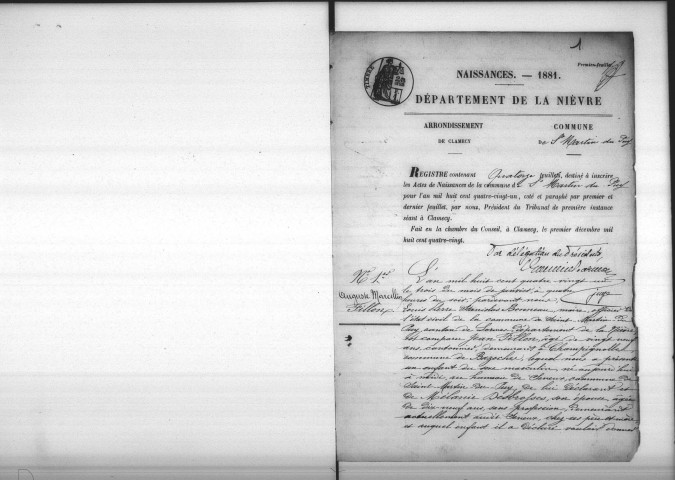 1
Premier feuillet
TIMBRE
NAISSANCES. — 1881.
DÉPARTEMENT DE LA NIÈVRE
ARRONDISSEMENT
DE CLAMECY
COMMUNE
De St Martin du Puy
REGISTRE contenant Quatorze feuillets, destiné à inscrire
les Actes de Naissances de la commune de St Martin du Puy
pour l'an mil huit cent quatre-vingt-un, coté et paraphé par premier et
dernier feuillet, par nous, Président du Tribunal de première instance
séant à Clamecy.
Fait en la chambre du Conseil, à Clamecy, le premier décembre mil
huit cent quatre-vingt.
Par délégation du Président,
juge
No 1er
Auguste Marcellin
Fillon
L'an mil huit cent quatre vingt un
le trois du mois de janvier à quatre
heures du soir, pardevant nous,
Louis Pierre Stanislas maire, officier de
l'état civil de la commune de Saint Martin du
Puy canton de Lorme Département de la Nièvre
est comparu Jean Fillon âgé de vingt neuf
ans, cantonnier, demeurant à Champignolles
commune de Bazoches, lequel nous a présenté
un enfant du sexe masculin, né aujourd'hui
à midi, au hameau de commune de
Saint Martin du Puy, de lui déclarant et
de Mélanie Desbrosses, son épouse, âgée
de Dix neuf ans, sans profession, demeurant
actuellement audit chez ses père et mère
et auquel enfant il a déclaré vouloir donner